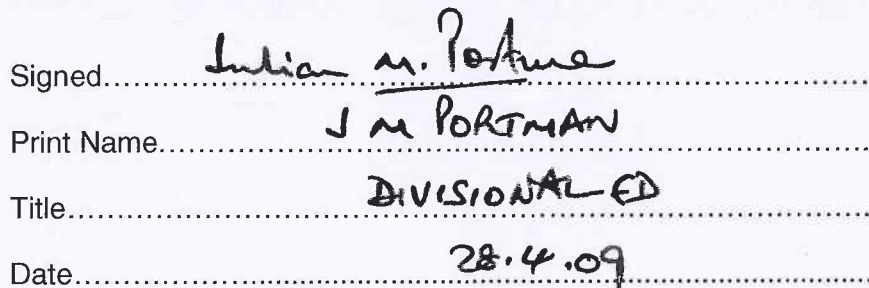 Signed.......Julian M. Portman.......
Print Name.......J M PORTMAN.......
Title.......DIVISIONAL FD.......
Date.......28.4.09.......